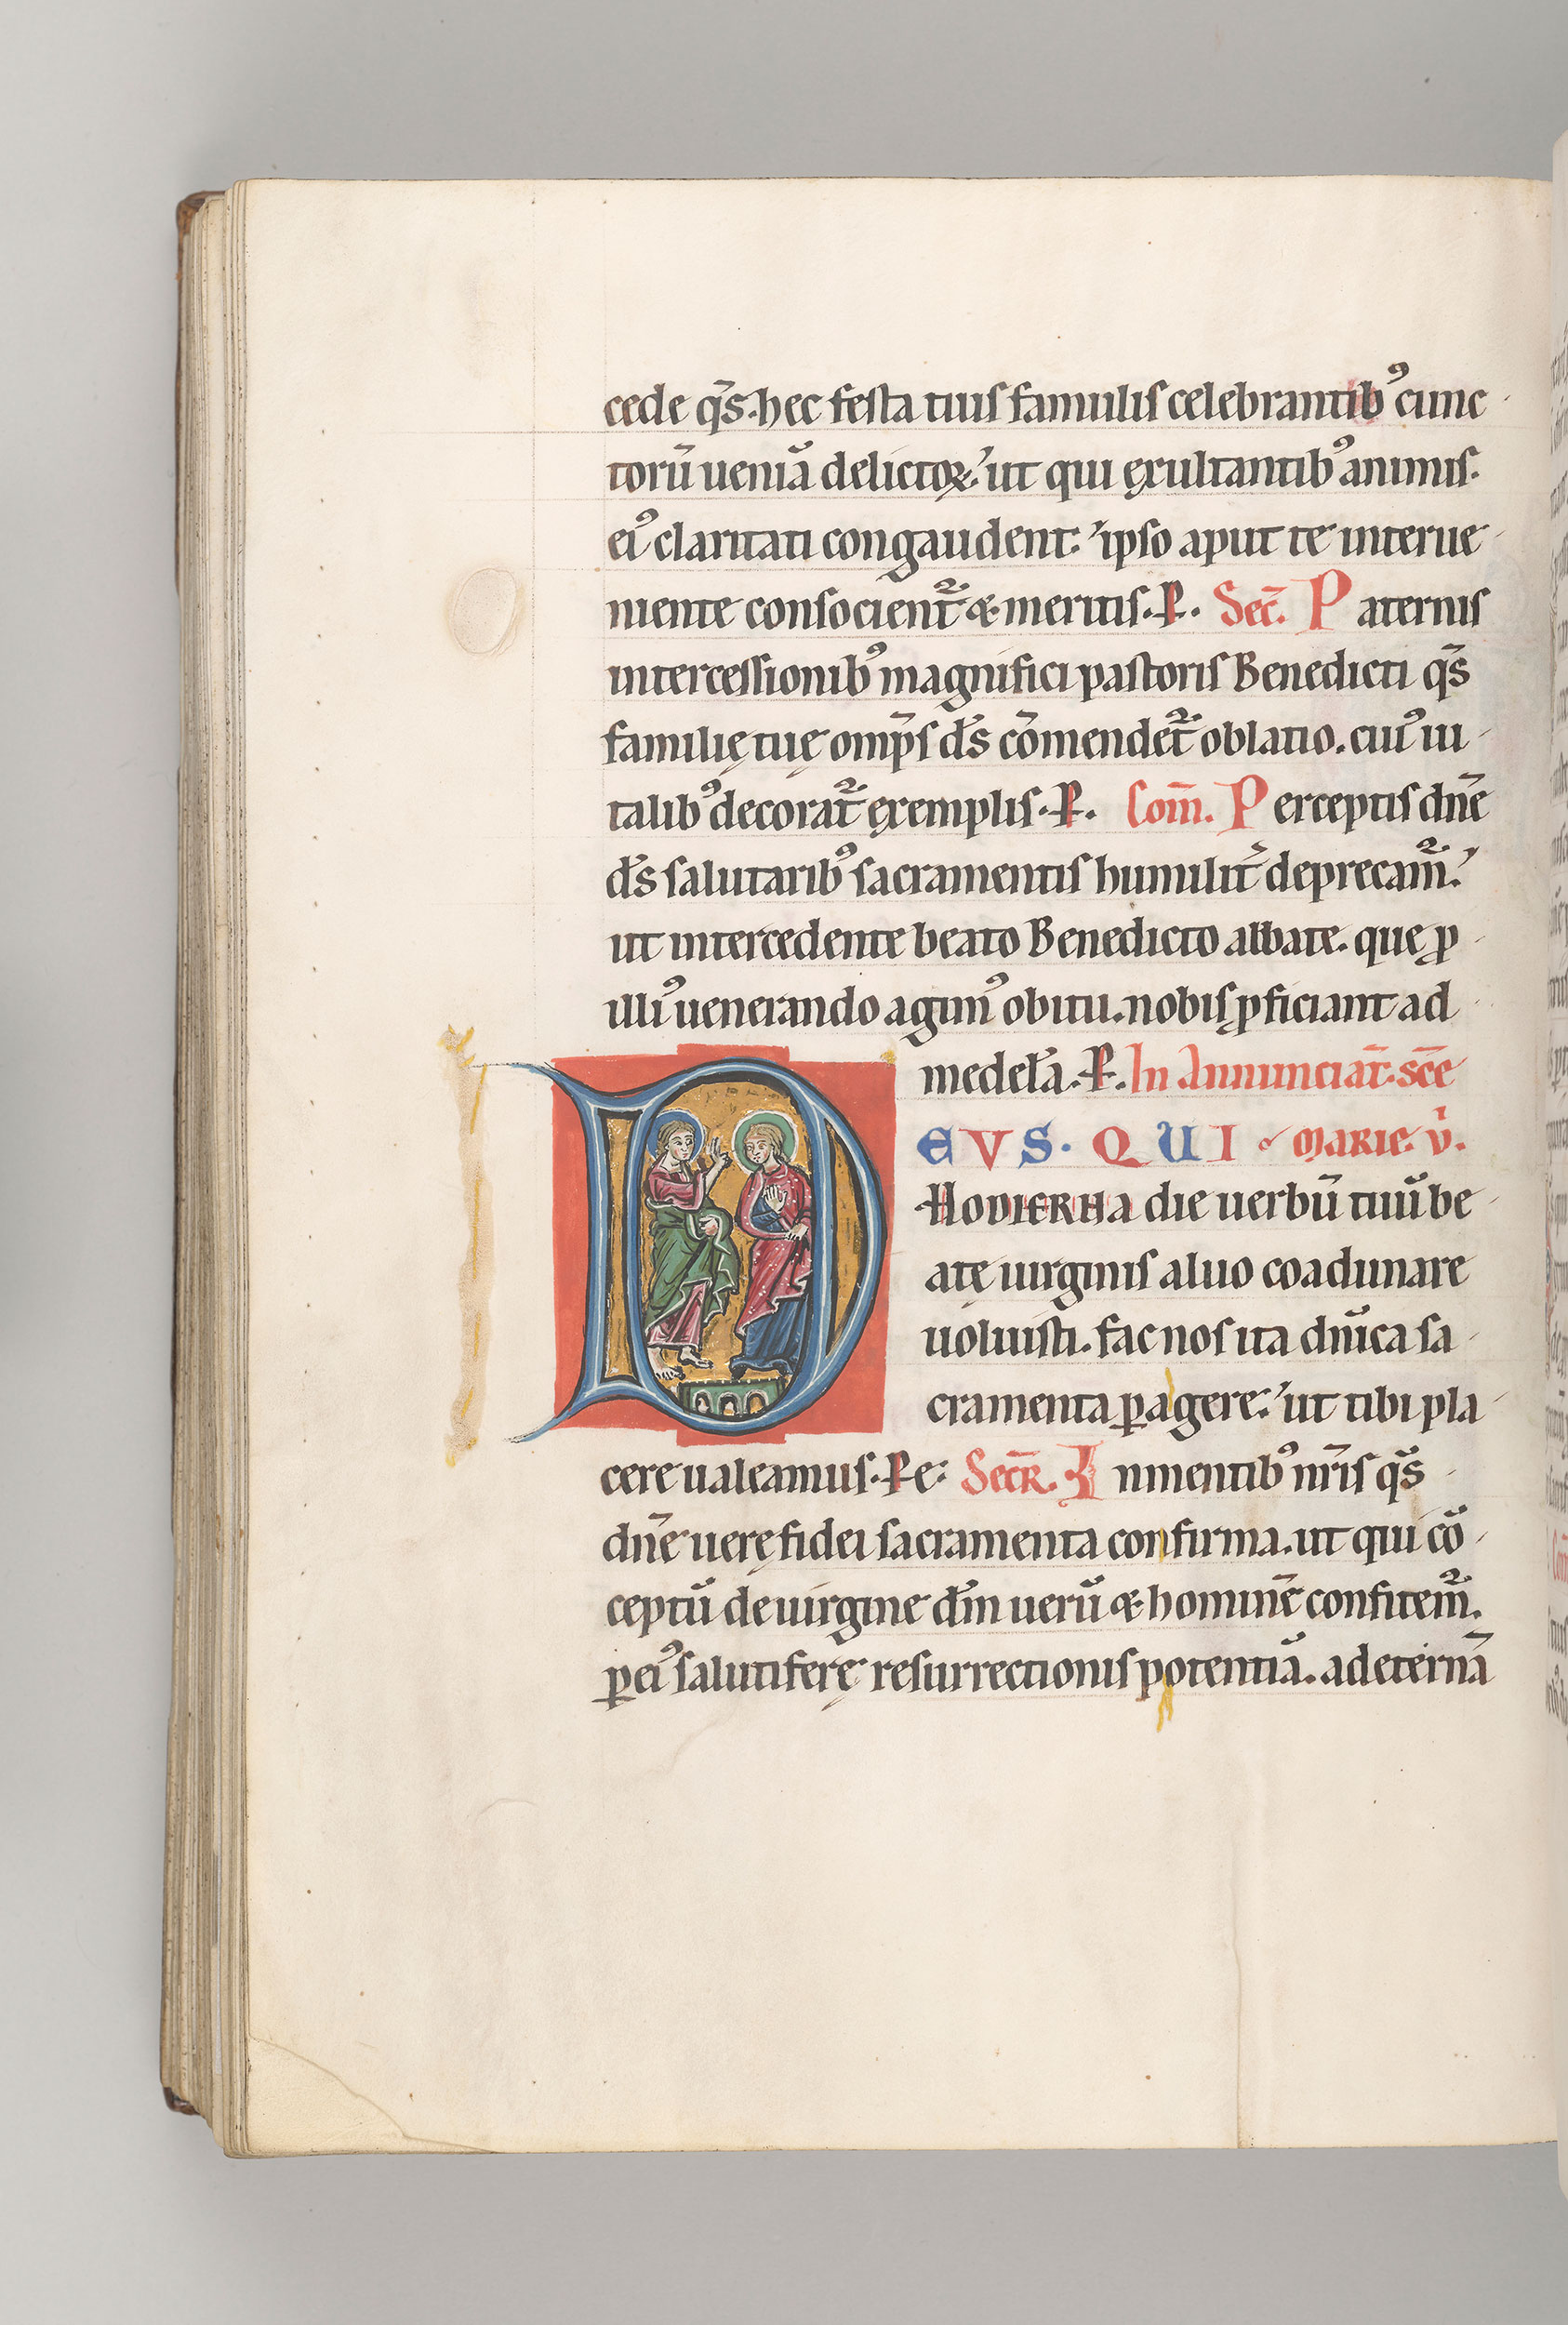 cede q̄s. hec festa tuis famulis celebrantibꝰ cunc
torū ueniā delictoꝝ. ut qui ęxultantibꝰ animis.
eiꝰ claritati congaudent. ipso aput te interue
niente consocient̄ & meritis. P. Sec̄. Paternis
intercessionibꝰ magnifici pastoris Benedicti q̄s
familię tuę omp̄s d̄s cōmendet̄ oblatio. cuiꝰ ui
talibꝰ decorat̄ ęxemplis. P. Com̄. Perceptis dn̄e
d̄s salutaribꝰ sacramentis humilit̄ deprecam̄.
ut intercedente beato Benedicto abbate. que ꝓ
illiꝰ uenerando agimꝰ obitu. nobis ꝓficiant ad
medelā. P. In Annunciat̄. sc̄e
DEVS. QUI MARIE. v̄.
HODIERNA die uerbū tuū be
atę uirginis aluo coadunare
uoluisti. fac nos ita dn̄ica sa
cramenta ꝑagere. ut tibi pla
cere ualeamus. Pe. Secr̄. In mentibꝰ nr̄is q̄s
dn̄e uerę fidei sacramenta confirma. ut qui cō
ceptū de uirgine d̄m uerū & hominē confitem̄.
ꝑ eiꝰ salutiferę resurrectionis potentiā. ad eternā